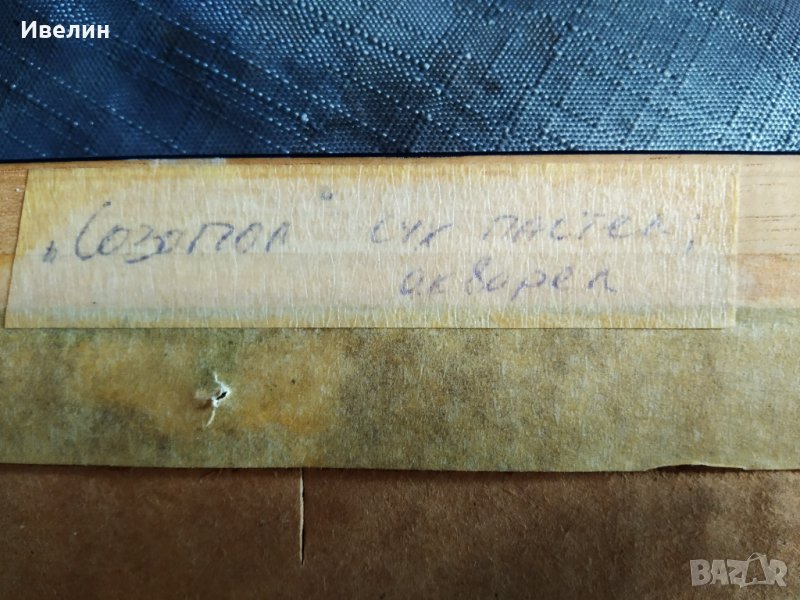 Ивелин
„Созопол“ сух пастел,
акварел
BAZAR